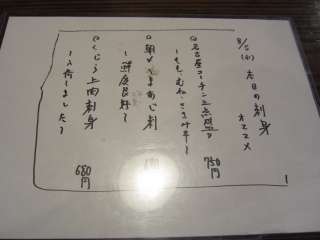 8/5(火) 本日の刺身
オススメ
○名古屋コーチン三点盛り
～もも、むね、ささみ～
750円
○朝〆 あじ刺
～鮮度良好～
○くじら上肉刺身
～入荷しました～
680円